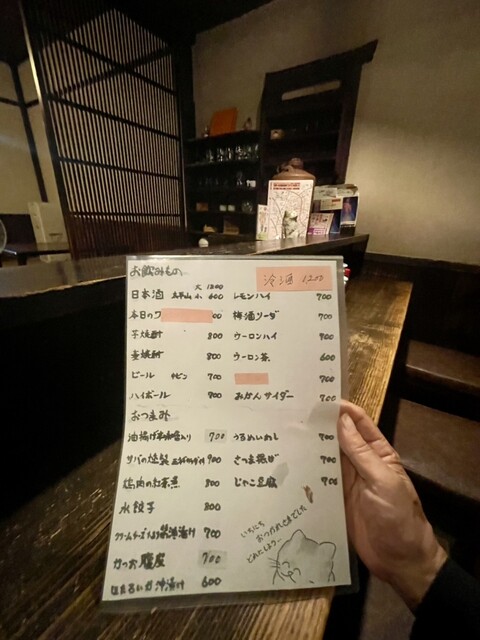 お飲みもの
冷酒 1200
大 1200
日本酒 小 600
レモンハイ 700
本日の
梅酒ソーダ 700
芋焼酎 800
ウーロンハイ 900
麦焼酎 800
ウーロン茶 600
ビール 中ビン 700
700
ハイボール 700
みかんサイダー 700
おつまみ
油揚げ 入り 700
うるめいわし 700
サバの燻製 900
さつま揚げ 700
鶏肉の紅茶煮 800
じゃこ豆腐 700
水餃子 800
クリームチーズ 700
かつお腹皮 700
ほたるいか沖漬け 600
いちにち
おつかれさまでした